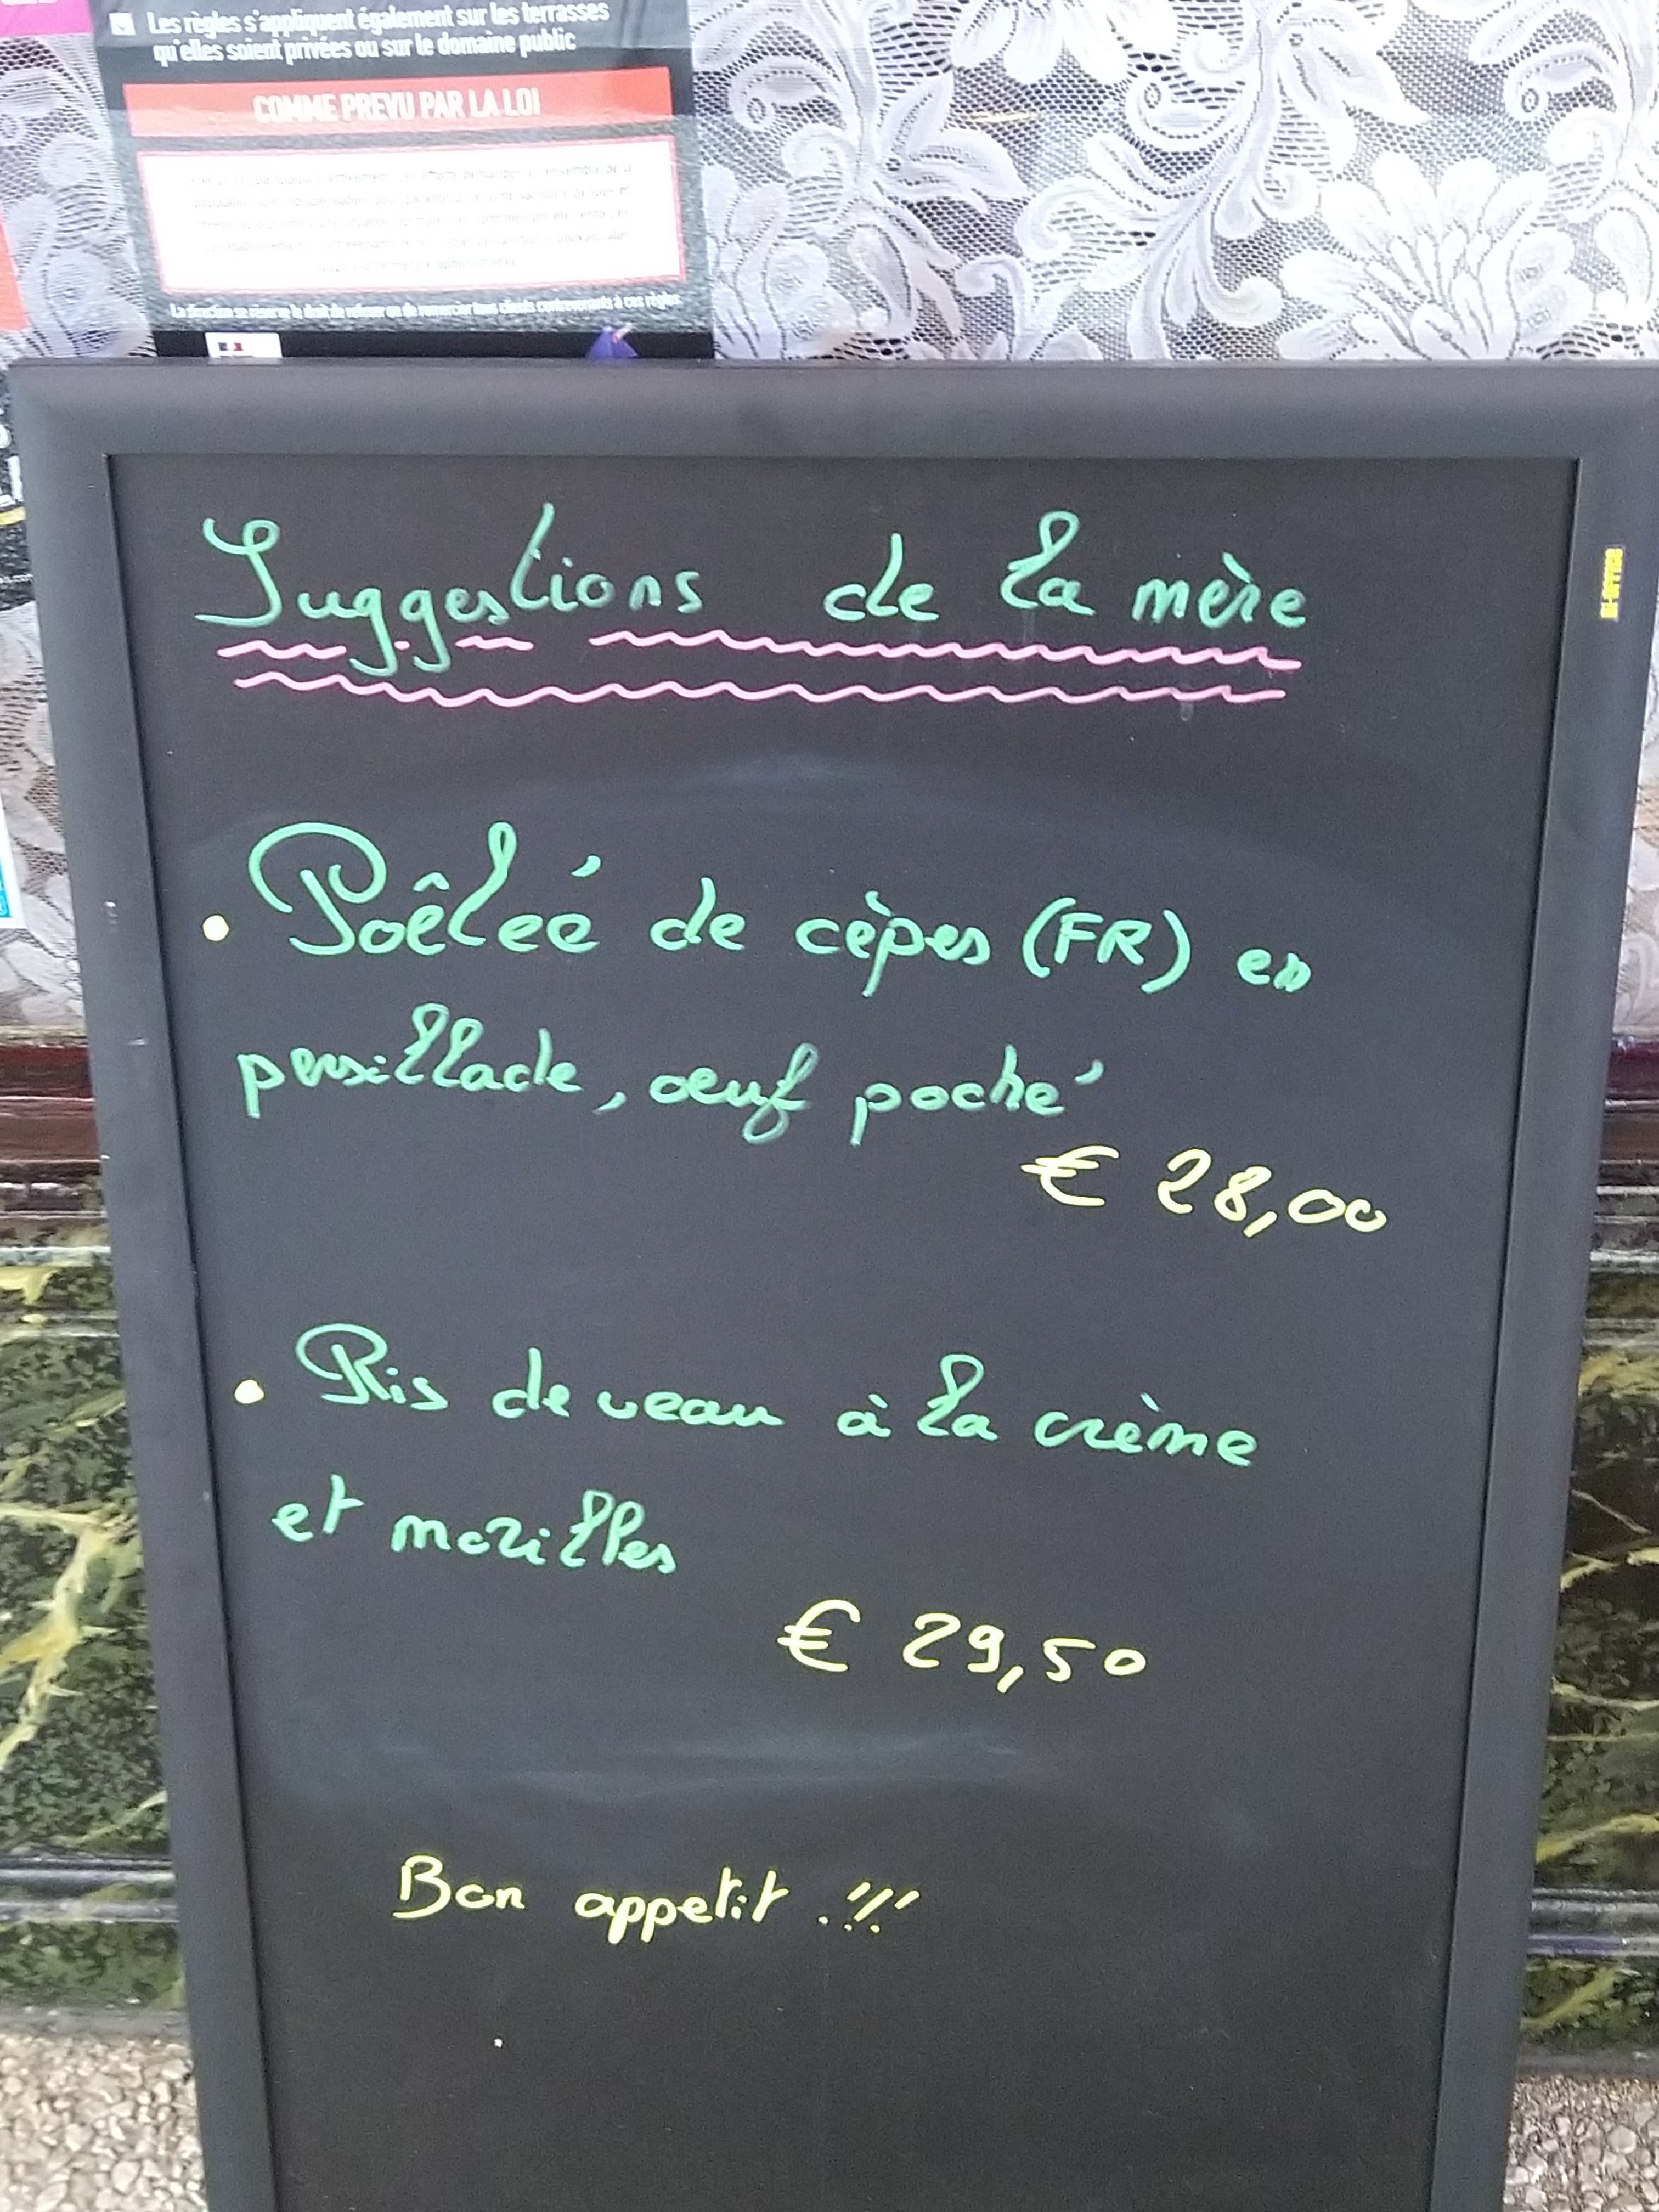 Les règles s'appliquent également sur les terrasses
qu'elles soient privées ou sur le domaine public
COMME PREVU PAR LA LOI
La direction se réserve le droit de refuser ou de remercier tous clients contrevenants à ces règles
Suggestions de la mère
• Poêleé de cèpes (FR) en
persillade, oeuf poché
€ 28,00
• Ris de veau à la crème
et morilles
€ 29,50
Bon appetit !!!